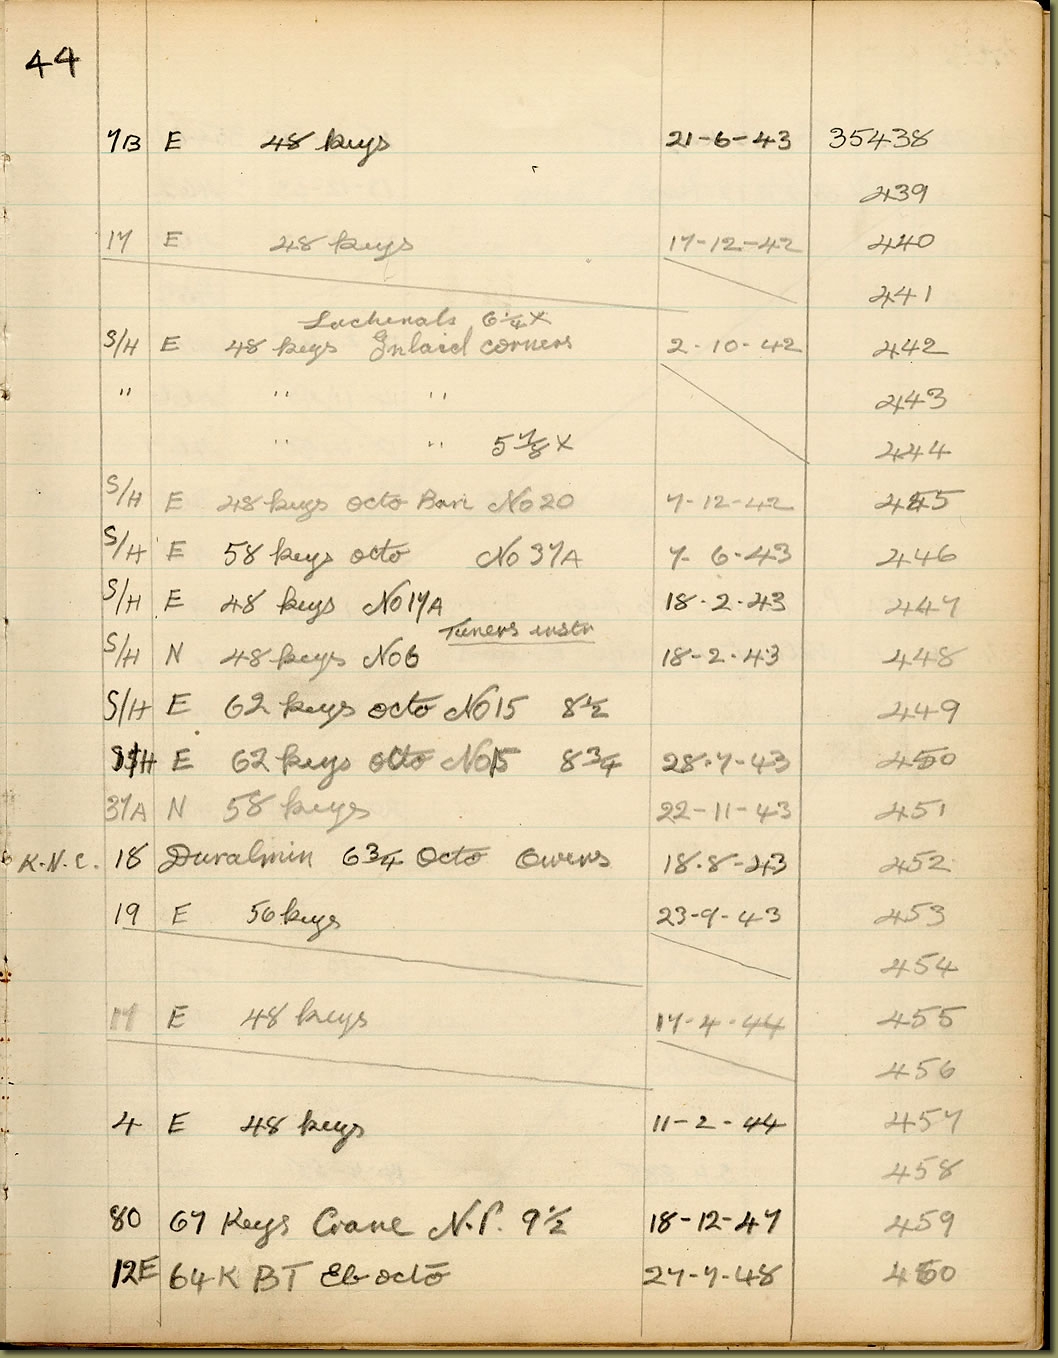 44
7B E 48 keys 21-6-43 35438
439
17 E 48 keys 17-12-42 440
441
Lachenals 6¼ x
S/H E 48 keys Inlaid corners 2-10-42 442
" " " 443
" " 5⅞ x 444
S/H E 48 keys octo Bari No 20 7-12-42 445
S/H E 58 keys octo No 37A 7-6-43 446
S/H E 48 keys No 17A 18-2-43 447
Tuners instr
S/H N 48 keys No 6 18-2-43 448
S/H E 62 keys octo No 15 8½ 449
S/H E 62 keys octo No 15 8¾ 28-7-43 450
37A N 58 keys 22-11-43 451
K.N.C. 18 Duralmin 6¾ Octo Owens 18-8-43 452
19 E 56 keys 23-9-43 453
454
17 E 48 keys 17-4-44 455
456
4 E 48 keys 11-2-44 457
458
80 67 Keys Crane N.P. 9½ 18-12-47 459
12E 64 K BT Eb octo 27-7-48 460